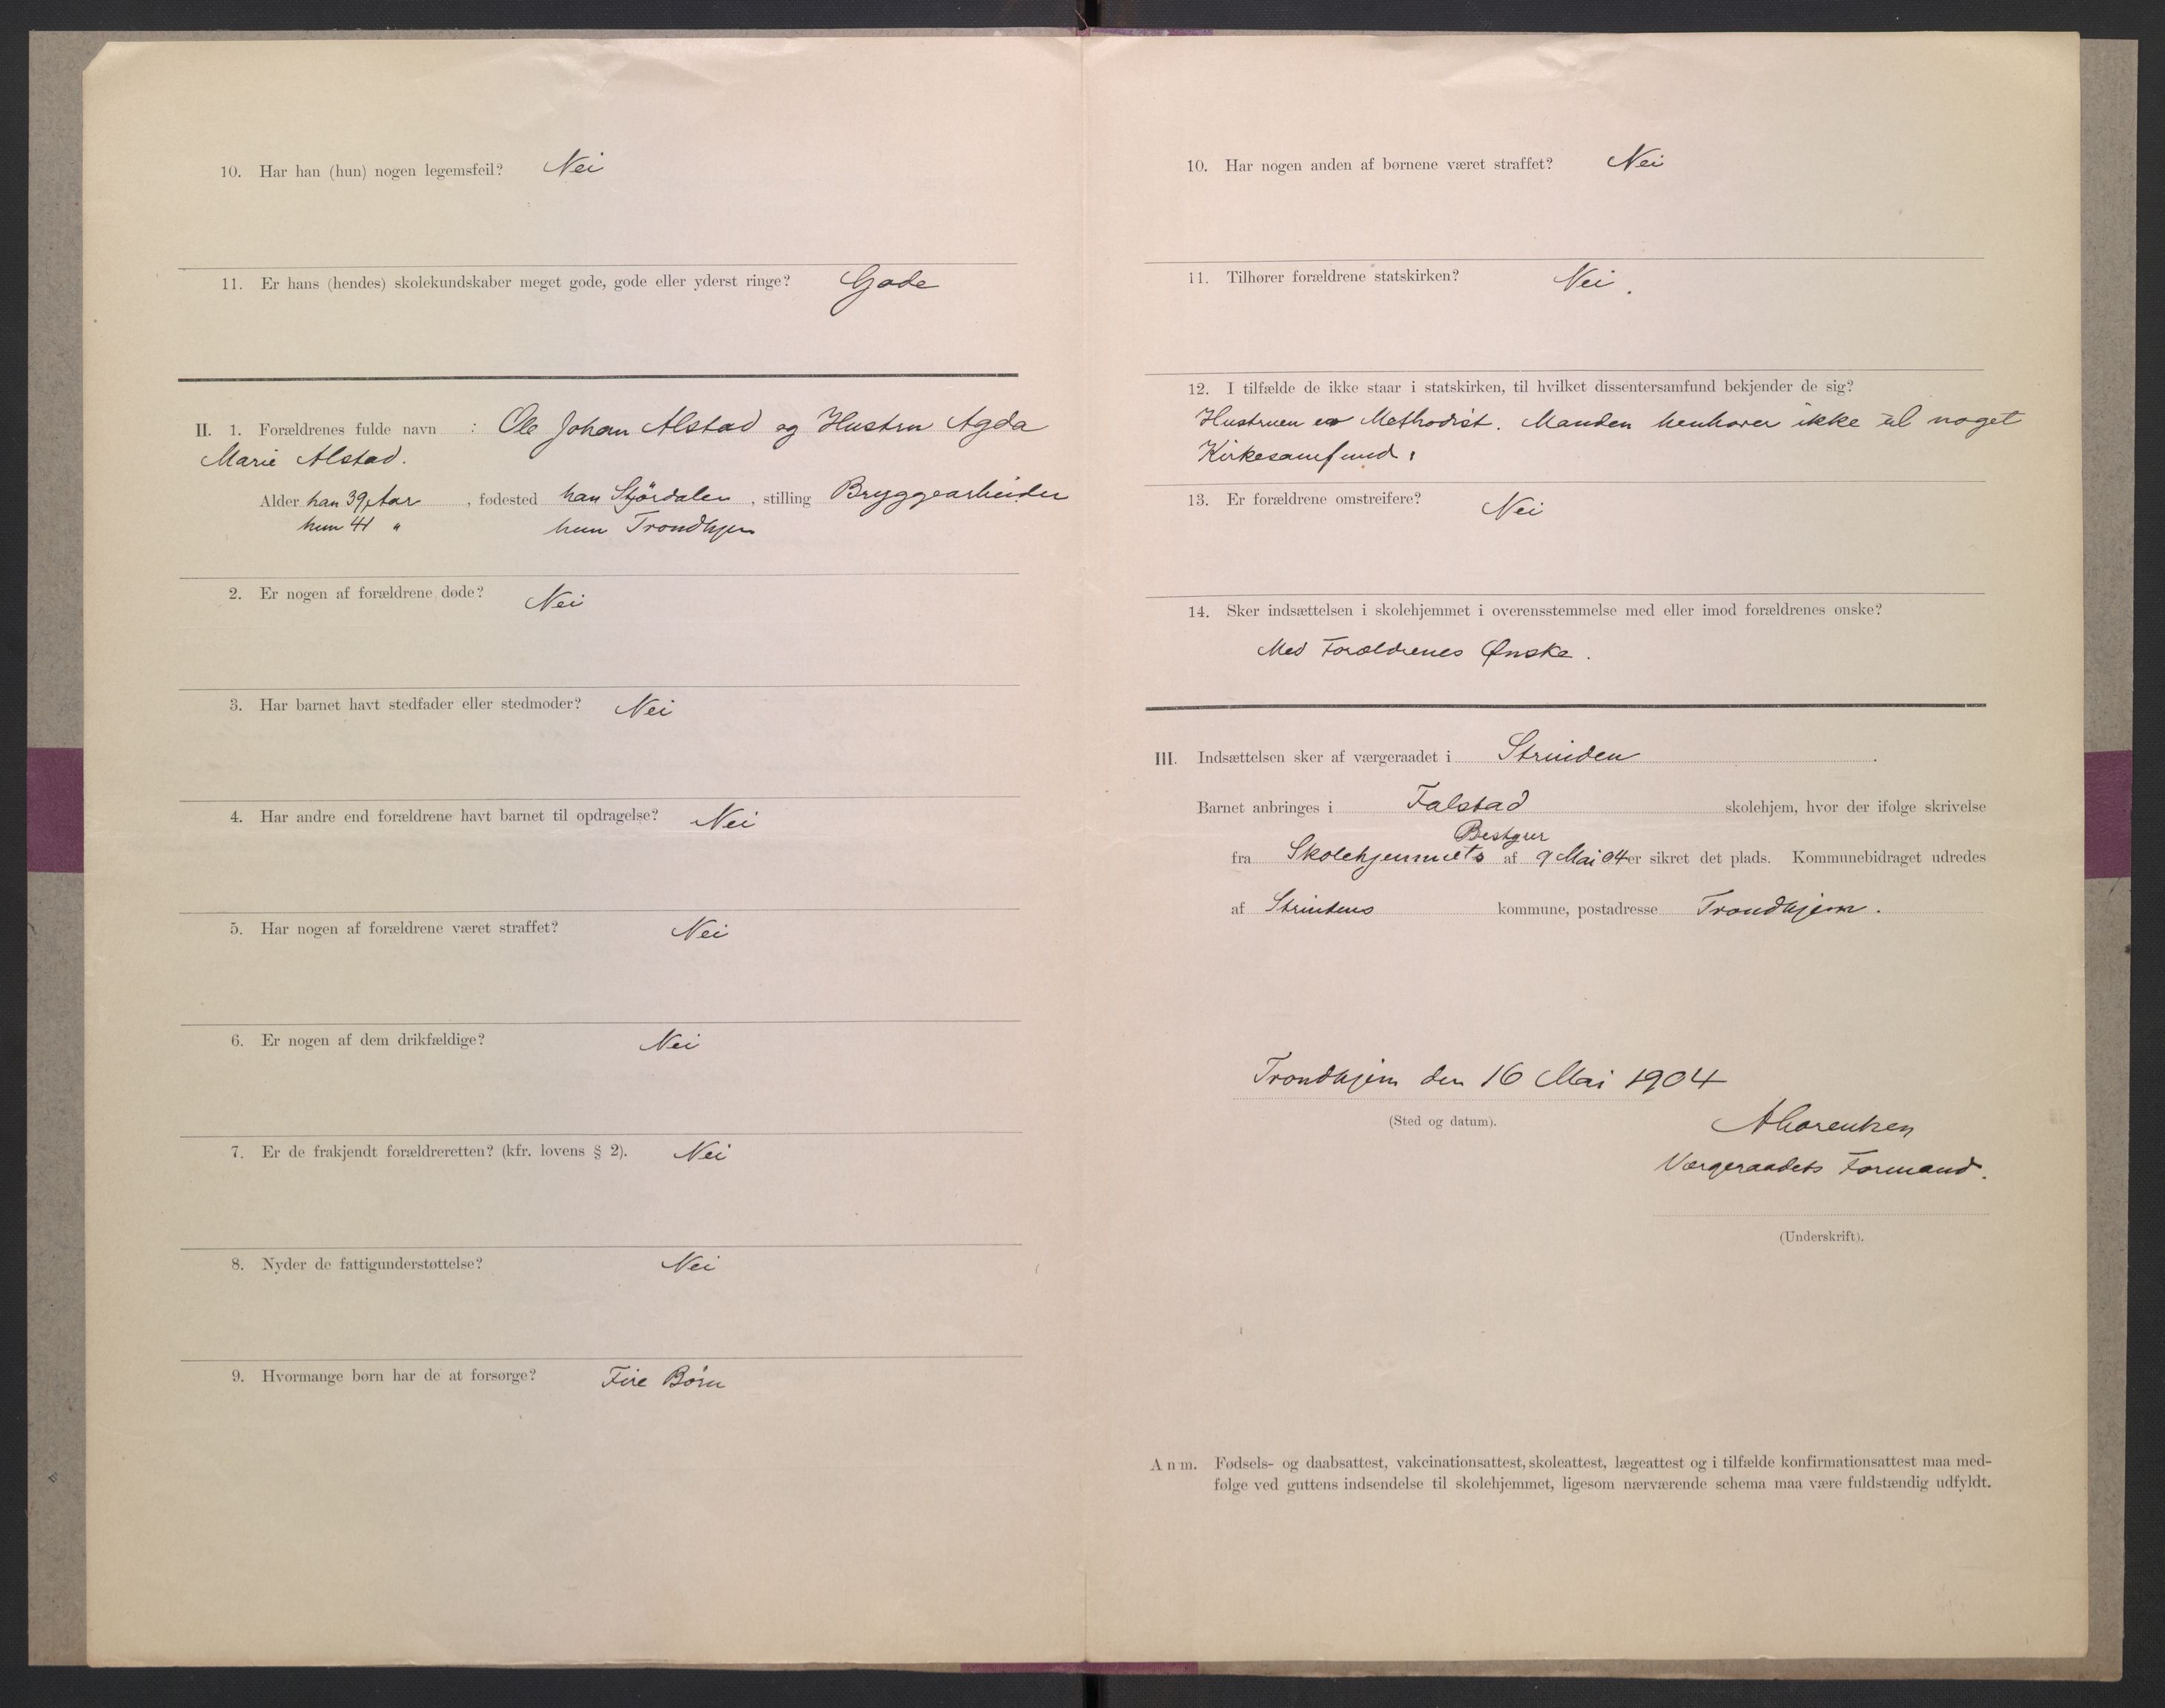 10. Har han (hun) nogen legemsfeil? Nei
11. Er hans (hendes) skolekundskaber meget gode, gode eller yderst ringe? Gode
II. 1. Forældrenes fulde navn : Ole Johan Alstad og Hustru Agda
Marie Alstad.
Alder han 39 Aar , fødested han Stjördalen , stilling Bryggearbeider
hun 41 " hun Trondhjem
2. Er nogen af forældrene døde? Nei
3. Har barnet havt stedfader eller stedmoder? Nei
4. Har andre end forældrene havt barnet til opdragelse? Nei
5. Har nogen af forældrene været straffet? Nei
6. Er nogen af dem drikfældige? Nei
7. Er de frakjendt forældreretten? (kfr. lovens § 2). Nei
8. Nyder de fattigunderstøttelse? Nei
9. Hvormange børn har de at forsørge? Fire Børn
10. Har nogen anden af børnene været straffet? Nei
11. Tilhører forældrene statskirken? Nei.
12. I tilfælde de ikke staar i statskirken, til hvilket dissentersamfund bekjender de sig?
Hustruen er Methodist. Manden henhører ikke til noget
Kirkesamfund.
13. Er forældrene omstreifere? Nei
14. Sker indsættelsen i skolehjemmet i overensstemmelse med eller imod forældrenes ønske?
Med Forældrenes Ønske.
III. Indsættelsen sker af værgeraadet i Strinden .
Barnet anbringes i Falstad skolehjem, hvor der ifølge skrivelse
Bestyrer
fra Skolehjemmets af 9 Mai 04 er sikret det plads. Kommunebidraget udredes
af Strindens kommune, postadresse Trondhjem.
Trondhjem den 16 Mai 1904
(Sted og datum).
Værgeraadets Formand.
(Underskrift).
Anm. Fødsels- og daabsattest, vakcinationsattest, skoleattest, lægeattest og i tilfælde konfirmationsattest maa med-
følge ved guttens indsendelse til skolehjemmet, ligesom nærværende schema maa være fuldstændig udfyldt.